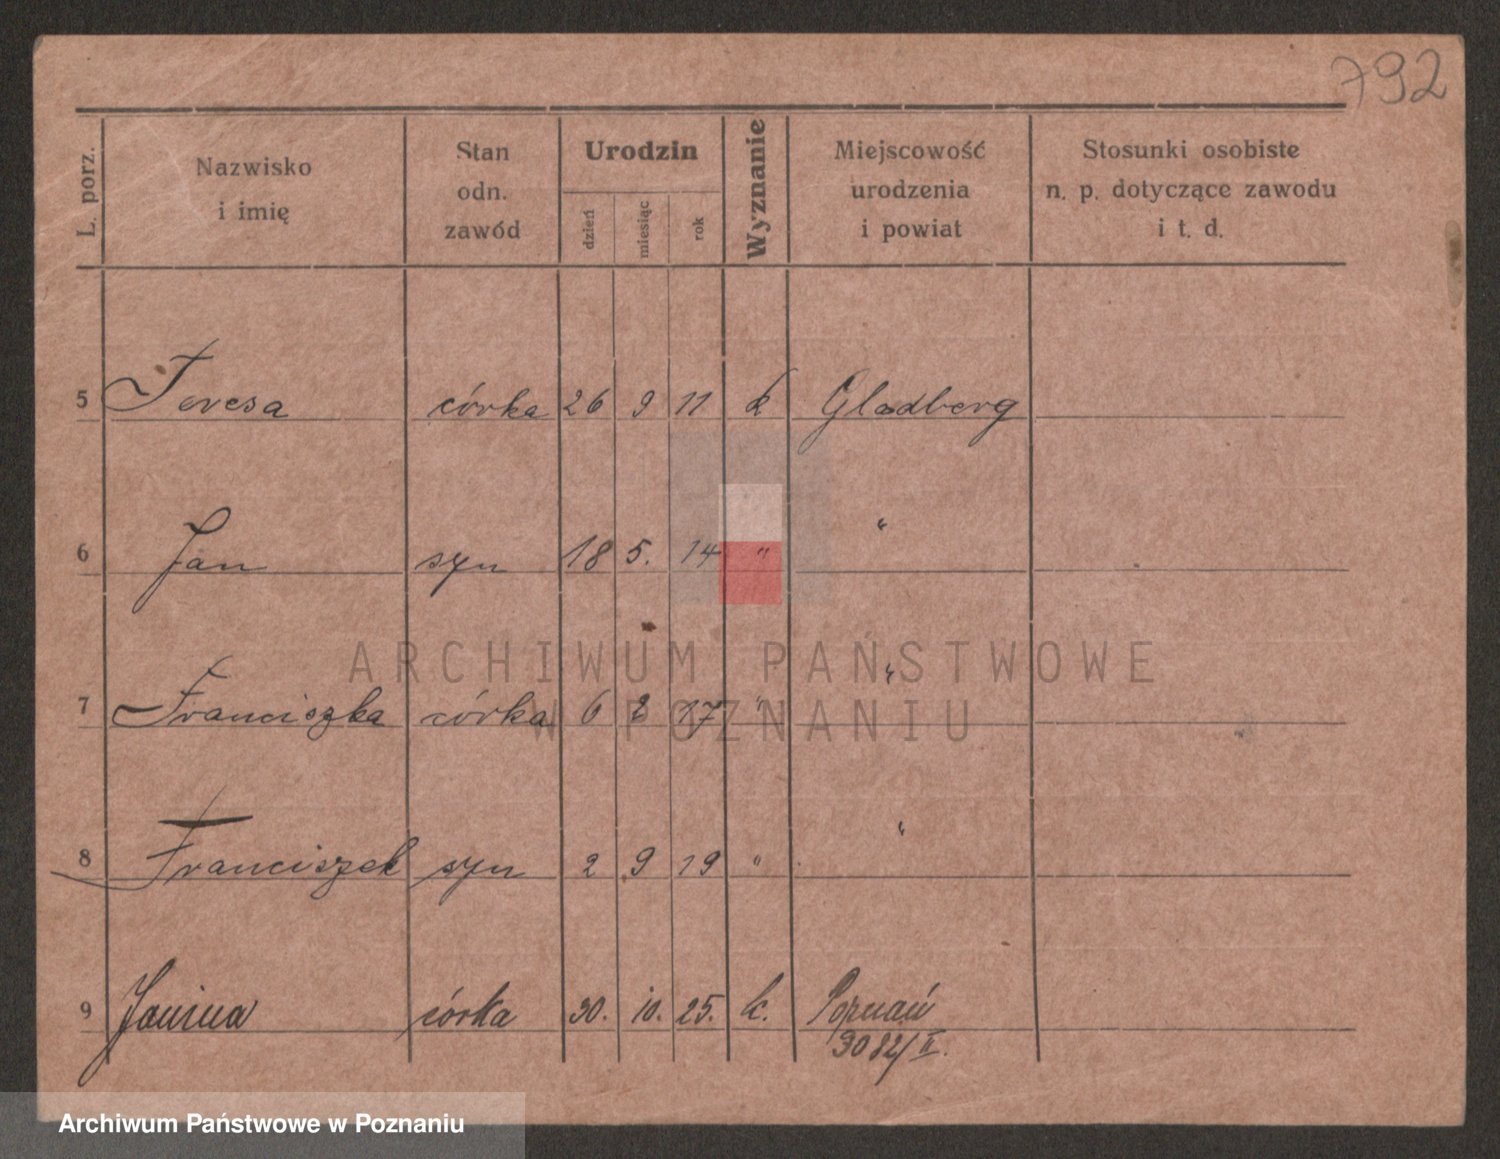 792
L. porz.
Nazwisko
i imię
Stan
odn.
zawód
Urodzin
dzień
miesiąc
rok
Wyznanie
Miejscowość
urodzenia
i powiat
Stosunki osobiste
n. p. dotyczące zawodu
i t. d.
5 Teresa córka 26 9 11 k Gladberg
6 Jan syn 18 5. 14 " "
7 Franciszka córka 6 2 17 " "
8 Franciszek syn 2 9 19 " "
9 Janina córka 30. 10. 25. k. Poznań
3082/II.
ARCHIWUM PAŃSTWOWE
W POZNANIU
Archiwum Państwowe w Poznaniu